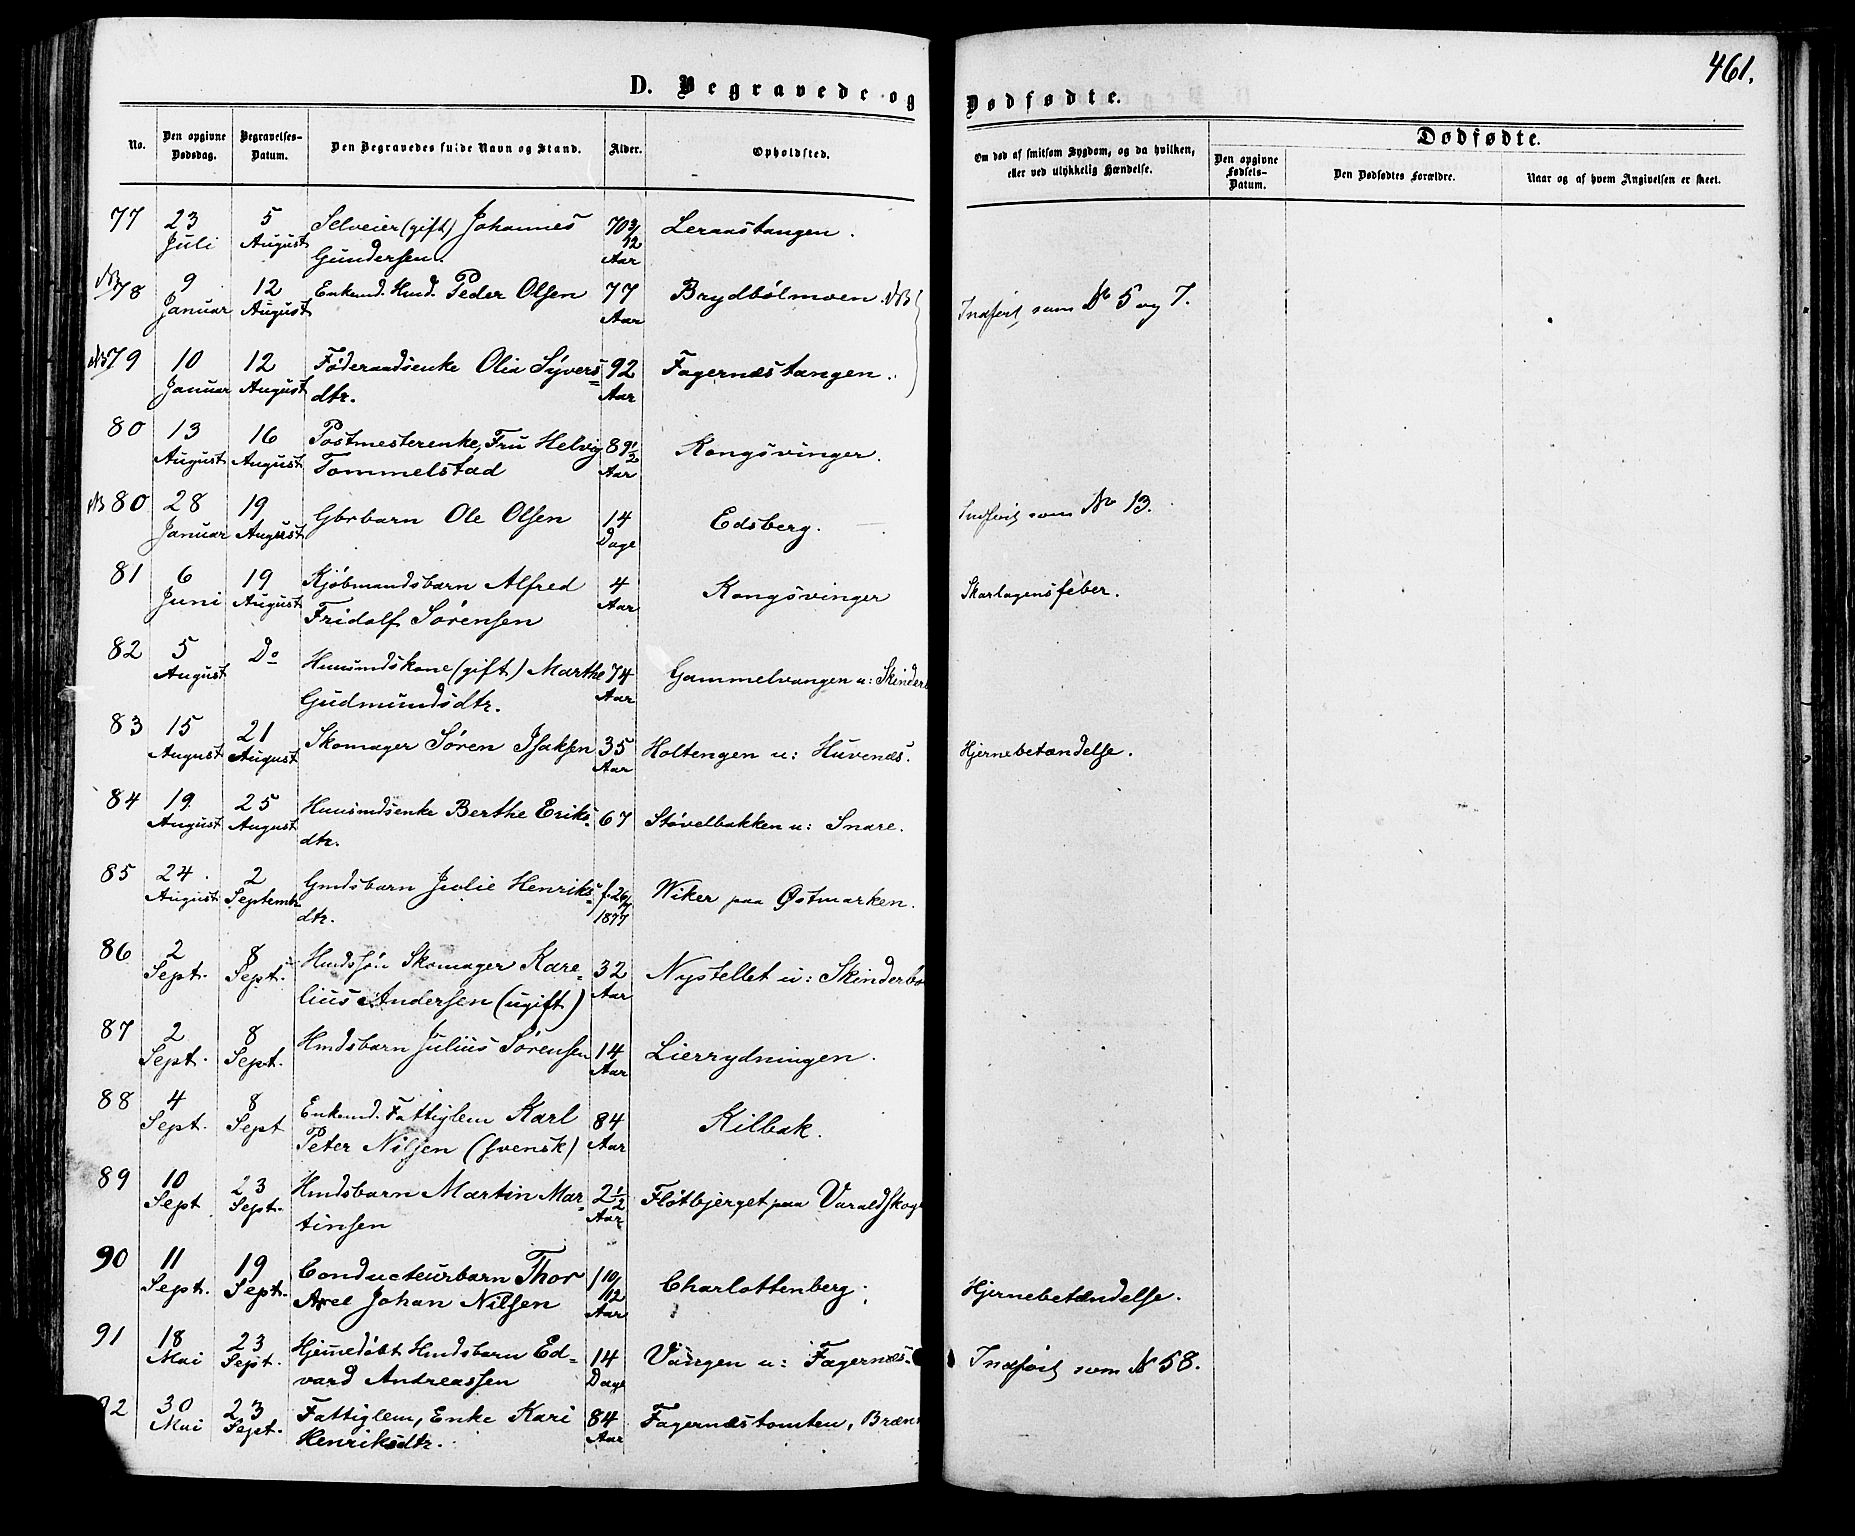 461.
D. Begravede og Dødfødte.
No.
Den opgivne Dødsdag.
Begravelses-Datum.
Den Begravedes fulde Navn og Stand.
Alder.
Opholdsted.
Om død af smitsom Sygdom, og da hvilken, eller ved ulykkelig Hændelse.
Dødfødte.
Den opgivne Fødsels-Datum.
Den Dødfødtes Forældre.
Naar og af hvem Angivelsen er skeet.
77 23 Juli 5 August Selveier (gift) Johannes Gundersen. 70 3/12 Aar Leraastangen.
NB 78 9 Januar 12 August Enkemd. Hmd. Peder Olsen 77 Aar Brydbølmoen. NB Indført som No 5 og 7.
NB 79 10 Januar 12 August Føderaadsenke Olia Syvers= dtr. 92 Aar Fagernæstangen.
80 13 August 16 August Postmesterenke, Fru Helvig Tommelstad 89 1/2 Aar Kongsvinger.
NB 80 28 Januar 19 August Gbrbarn Ole Olsen 14 Dage Edsberg. Indført som No 13.
81 6 Juni 19 August Kjøbmandsbarn Alfred Fridolf Sørensen 4 Aar Kongsvinger Skarlagensfeber.
82 5 August Do Huusmdskone (gift) Marthe Gudmundsdtr. 74 Aar Gammelvangen u: Skinderb
83 15 August 21 August Skomager Søren Isaksen 35 Aar Holtengen u: Huvenæs. Hjernebetændelse.
84 19 August 25 August Huusmdsenke Berthe Eriks= dtr. 67 Støvelbakken u: Snare.
85 24 August 2 Septembr Gmdsbarn Julie Henriks= dtr. f. 26/7 1877 Wiker paa Østmarken.
86 2 Sept. 8 Sept. Hmdssøn Skomager Kare= lius Andersen (ugift) 32 Aar Nystellet u: Skinderbo
87 2 Sept. 8 Sept. Hmdsbarn Julius Sørensen 14 Aar Lierrydningen.
88 4 Sept. 8 Sept Enkemd. Fattiglem Karl Peter Nilsen (svensk) 84 Aar Kilbak.
89 10 Sept 23 Sept. Hmdsbarn Martin Mar= tinsen 2 1/2 Aar Fløtbjerget paa Varaldskog
90 11 Sept. 19 Sept. Conducteurbarn Thor Axel Johan Nilsen 1 10/12 Aar Charlottenberg. Hjernebetændelse.
91 18 Mai 23 Sept. Hjemmedøbt Hmdsbarn Ed= vard Andreassen 14 Dage Vangen u: Fagernæs. Indført som No 58.
92 30 Mai 23 Sept. Fattiglem, Enke Kari Henriksdtr. 84 Aar Fagernæstomten, Bræn